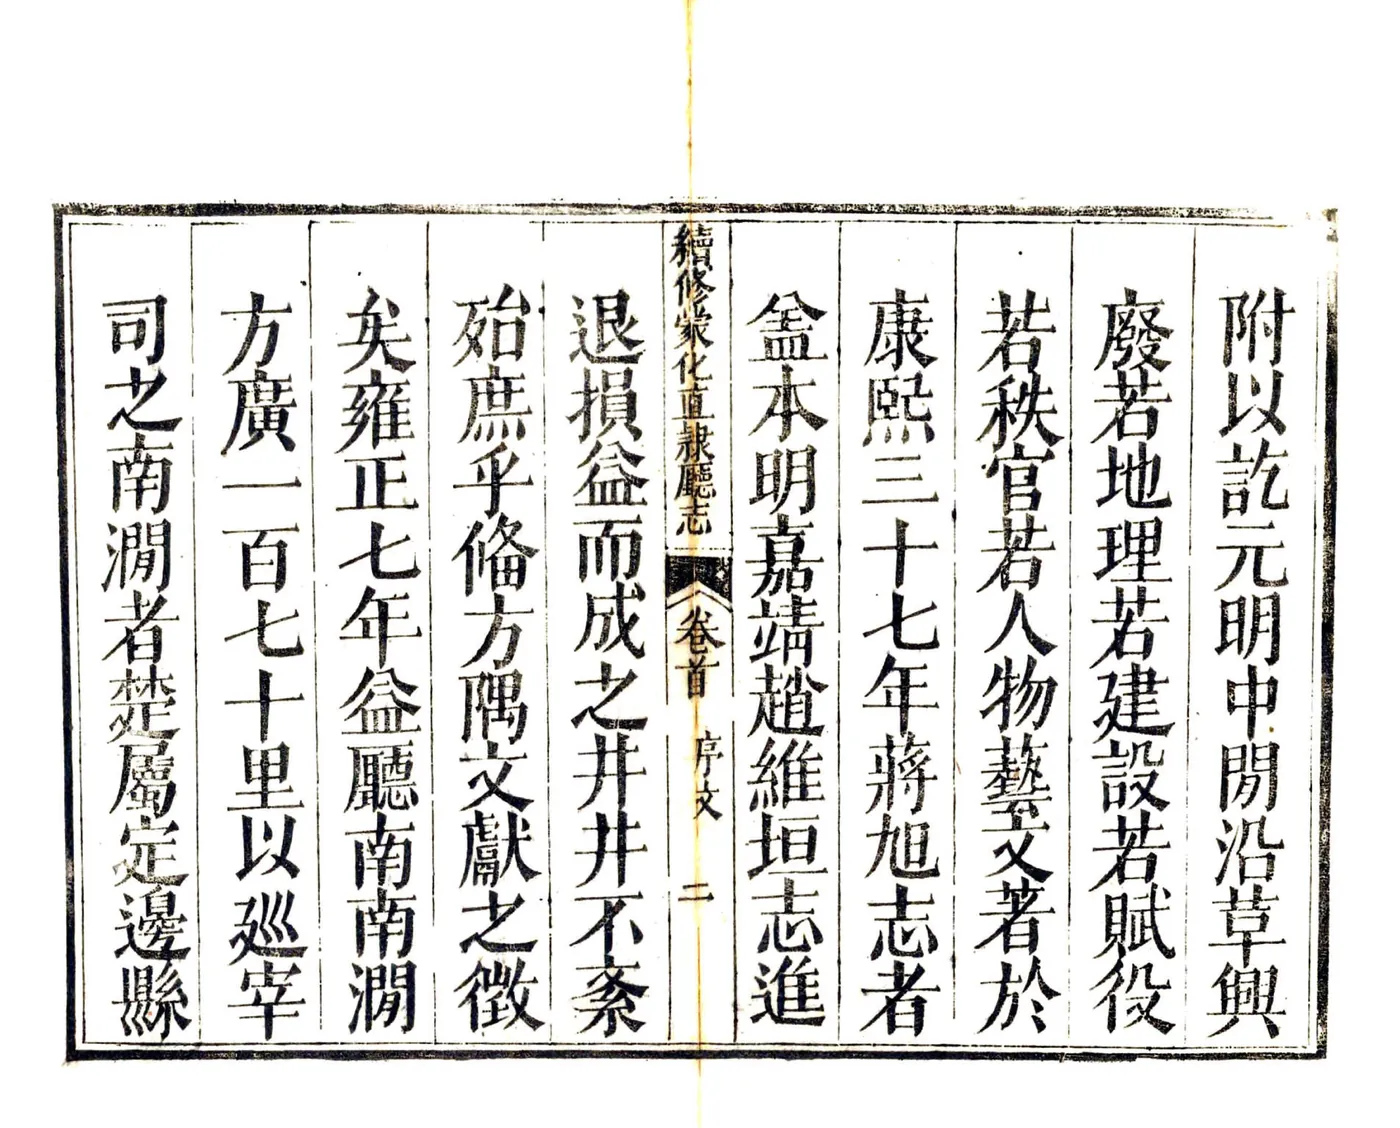 附以訖元明中閒沿草興
廢若地理若建設若賦役
若秩官若人物藝文著於
康熙三十七年蔣旭志者
盒本明嘉靖趙維垣志進
續修蒙化直隸廳志
卷首
序文
二
退損益而成之井井不紊
殆庶乎俻方隅文獻之徵
矣雍正七年益廳南南澗
方廣一百七十里以廵宰
司之南澗者楚屬定邊縣